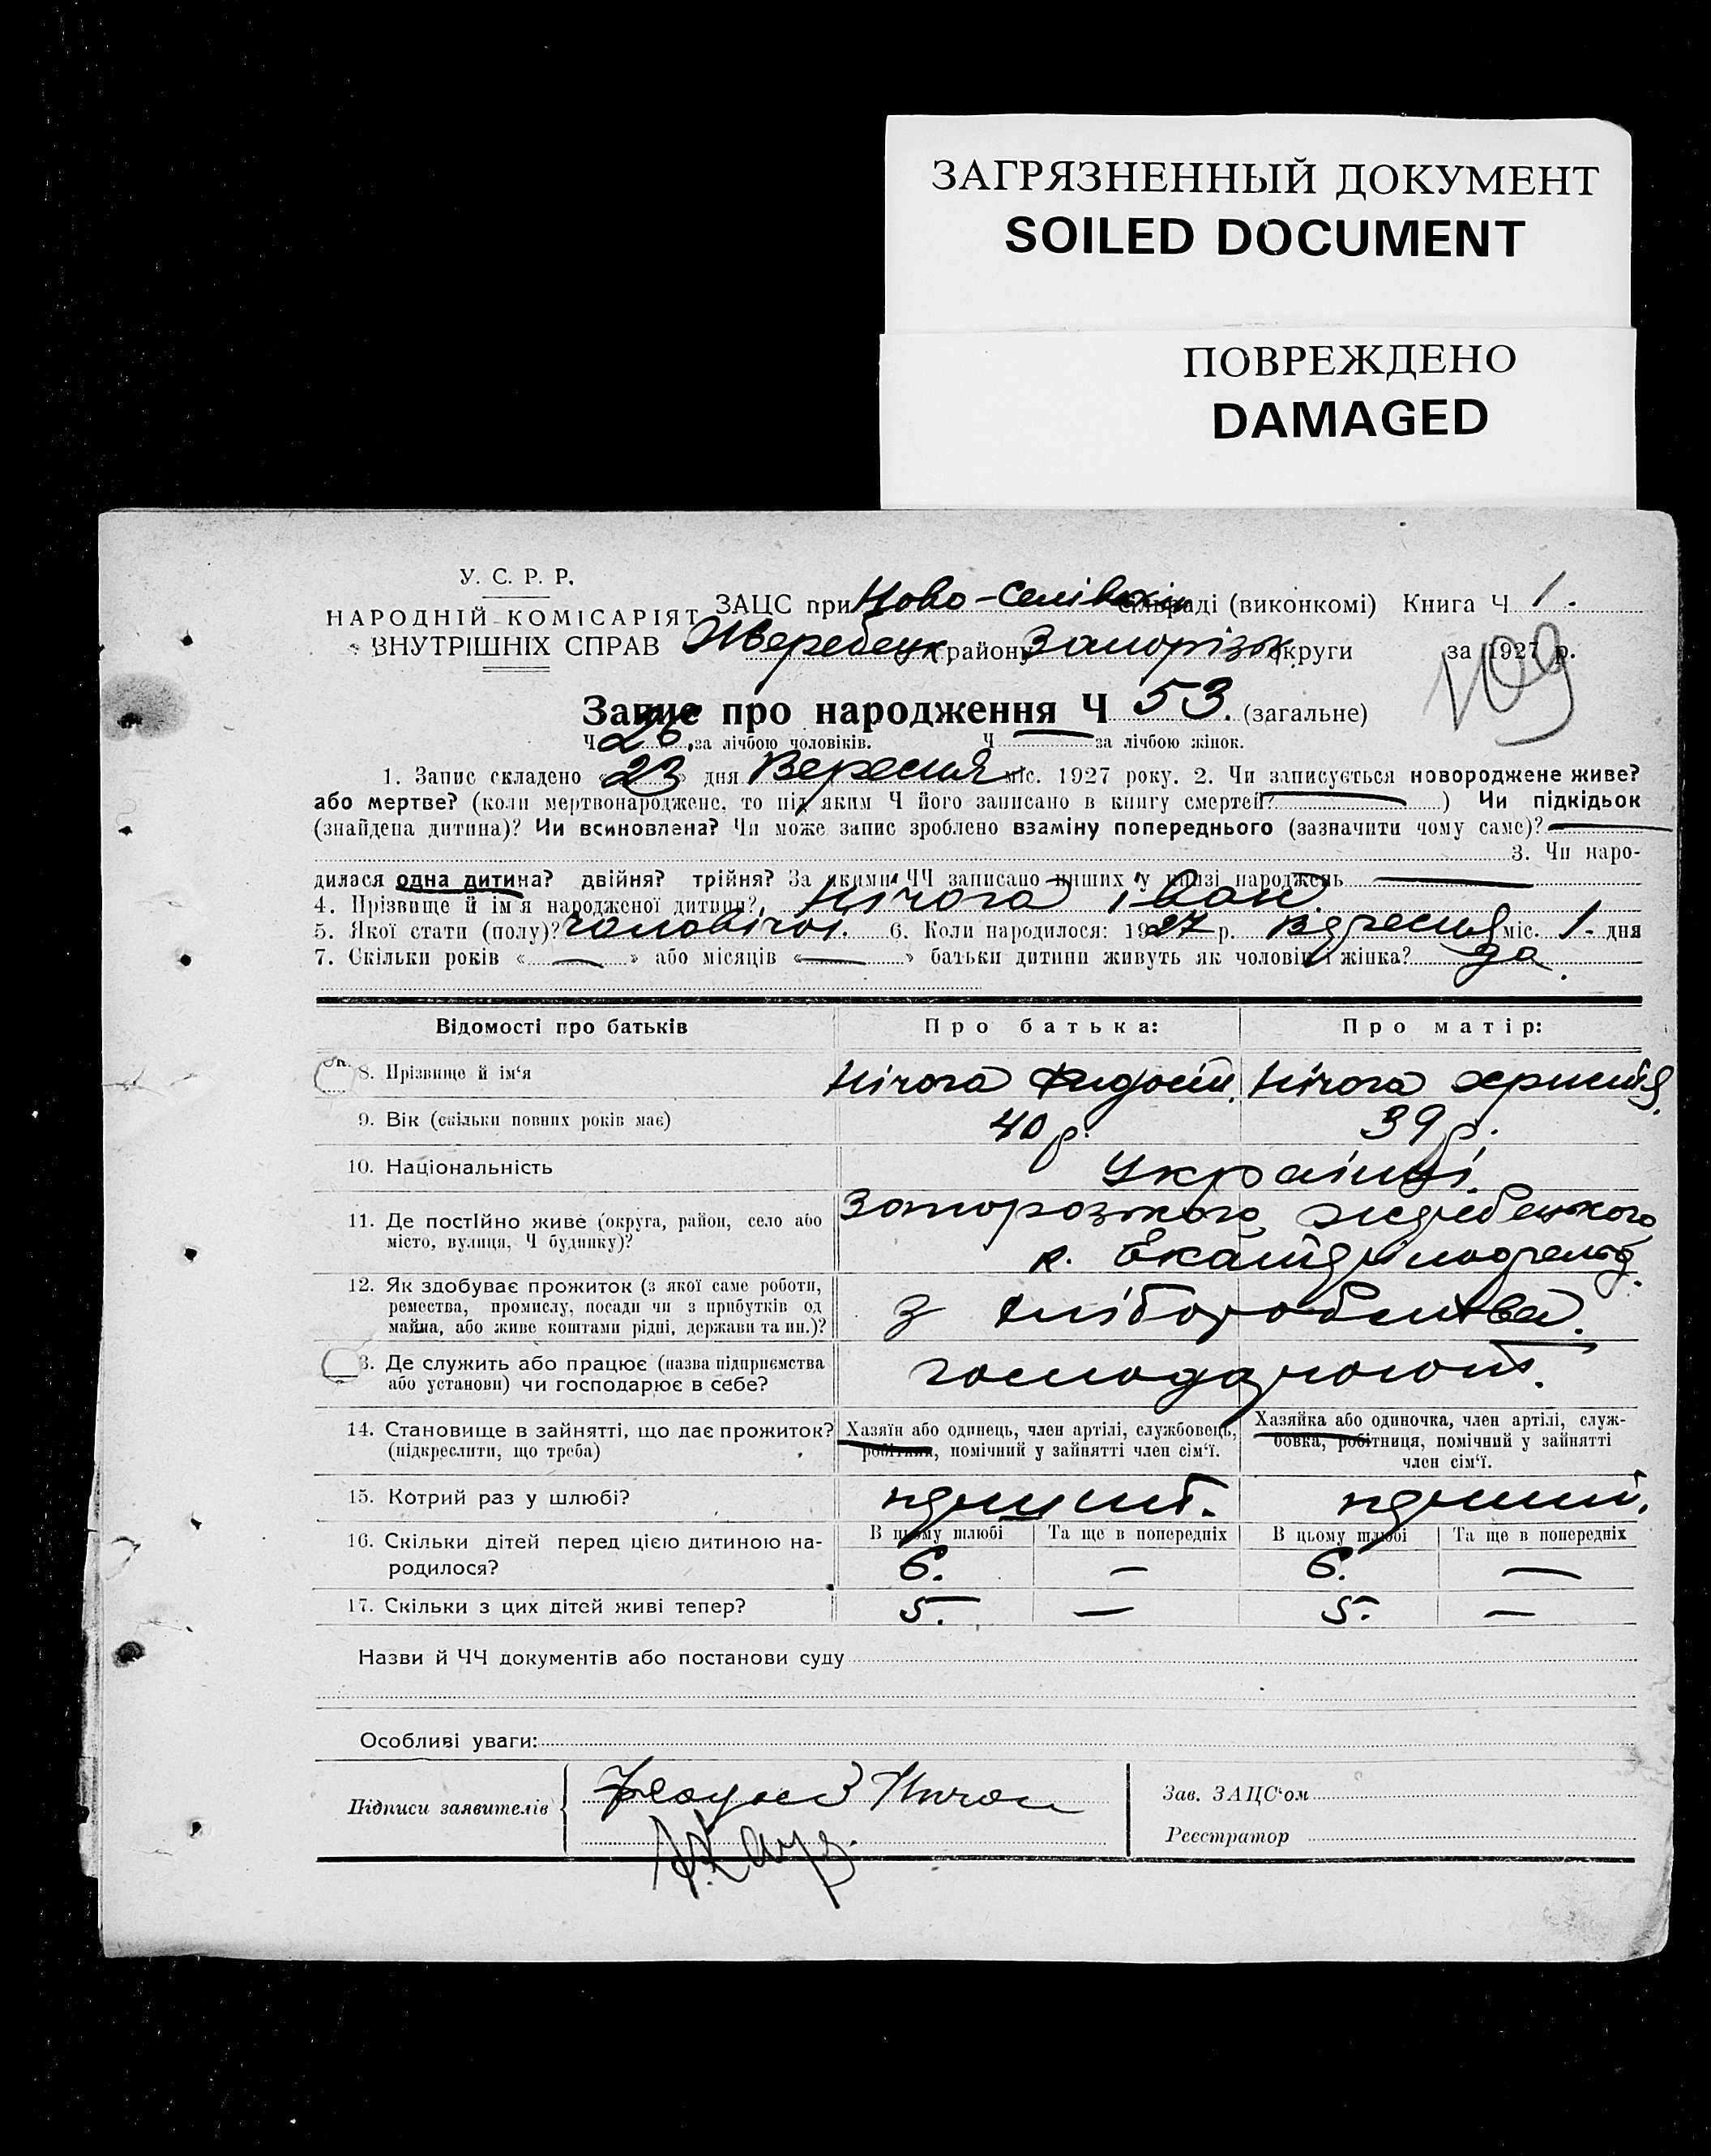 ЗАГРЯЗНЕННЫЙ ДОКУМЕНТ
SOILED DOCUMENT
ПОВРЕЖДЕНО
DAMAGED
У. С. Р. Р.
НАРОДНІЙ КОМІСАРІЯТ
ВНУТРІШНІХ СПРАВ
ЗАЦС при Ново-Селівскій сільраді (виконкомі) Книга Ч 1.
Жеребецьк. району Запорізьк. округи за 1927 р.
109
Запис про народження Ч 53. (загальне)
Ч 26, за лічбою чоловіків. Ч — за лічбою жінок.
1. Запис складено «23» дня Вересня міс. 1927 року. 2. Чи записується новороджене живе?
або мертве? (коли мертвонароджене, то під яким Ч його записано в книгу смертей? — ) Чи підкідьок
(знайдена дитина)? Чи всиновлена? Чи може запис зроблено взаміну попереднього (зазначити чому саме)? —
3. Чи наро-
дилася одна дитина? двійня? трійня? За якими ЧЧ записано инших у книзі народжень —
4. Прізвище й ім'я народженої дитини? Нічога Іван.
5. Якої стати (полу)? чоловічої. 6. Коли народилося: 1927 р. Вересня міс. 1. дня
7. Скільки років « — » або місяців « — » батьки дитини живуть як чоловік і жінка? да.
Відомості про батьків
Про батька:
Про матір:
8. Прізвище й ім'я
Нічога Федосій. Нічога Христя.
9. Вік (скільки повних років має)
40 р. 39 р.
10. Національність
Українці.
11. Де постійно живе (округа, район, село або
місто, вулиця, Ч будинку)?
Запорозького, Жеребецького
12. Як здобуває прожиток (з якої саме роботи,
ремества, промислу, посади чи з прибутків од
майна, або живе коштами рідні, держави та ин.)?
з хліборобства.
13. Де служить або працює (назва підприємства
або установи) чи господарює в себе?
господарюют.
14. Становище в зайнятті, що дає прожиток?
(підкреслити, що треба)
Хазяїн або одинець, член артілі, службовець,
робітник, помічний у зайнятті член сім'ї.
Хазяйка або одиночка, член артілі, служ-
бовка, робітниця, помічний у зайнятті
член сім'ї.
15. Котрий раз у шлюбі?
перший. перший.
В цьому шлюбі Та ще в попередніх В цьому шлюбі Та ще в попередніх
16. Скільки дітей перед цією дитиною на-
родилося?
6. — 6. —
17. Скільки з цих дітей живі тепер?
5. — 5. —
Назви й ЧЧ документів або постанови суду
Особливі уваги:
Підписи заявителів
Зав. ЗАЦС'ом
Реєстратор